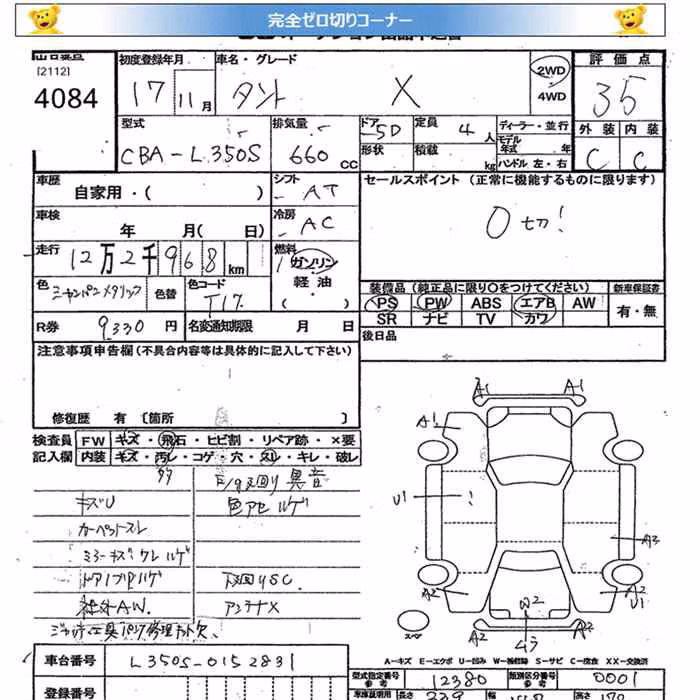 完全ゼロ切りコーナー
[2112]
4084
初度登録年月
車名・グレード
評価点
17 11月
タント X
2WD
4WD
35
型式
排気量
ドア
定員
ディーラー・並行
外装 内装
CBA-L350S
660CC
5D
4人
モデル年式 年
C C
形状
積載
kg
ハンドル 左・右
車歴
自家用・( )
シフト
AT
セールスポイント (正常に機能するものに限ります)
0切!
車検
年 月( 日)
冷房
AC
走行
12万2千968km
燃料
ガソリン
軽油
( )
色
シャンパンメタリック
色替
色コード
T17
装備品 (純正品に限り○をつけてください)
新車保証書
PS PW ABS エアB AW
有・無
SR ナビ TV カワ
R券
9330円
名変通知期限 月 日
後日品
注意事項申告欄 (不具合内容等は具体的に記入して下さい)
修復歴 有 〔箇所 〕
検査員記入欄
FW キズ・飛石・ヒビ割・リペア跡・×要
内装 キズ・汚レ・コゲ・穴・スレ・キレ・破レ
異音
キズU
色アセ ハゲ
カーペットスレ
ミラーキズ・ワレ ハゲ
下廻りSC
社外AW.
アンテナX
A1 A1
A1
U1
A3
A2
A2
U1
W2
A2
ムラ
スペア
A-キズ E-エクボ U-凹み W-補修跡 S-サビ C-腐食 XX-交換済
車台番号
L350S-0152831
型式指定番号
参考
12380
類別区分番号
参考
0001
登録番号
長さ
幅
高さ